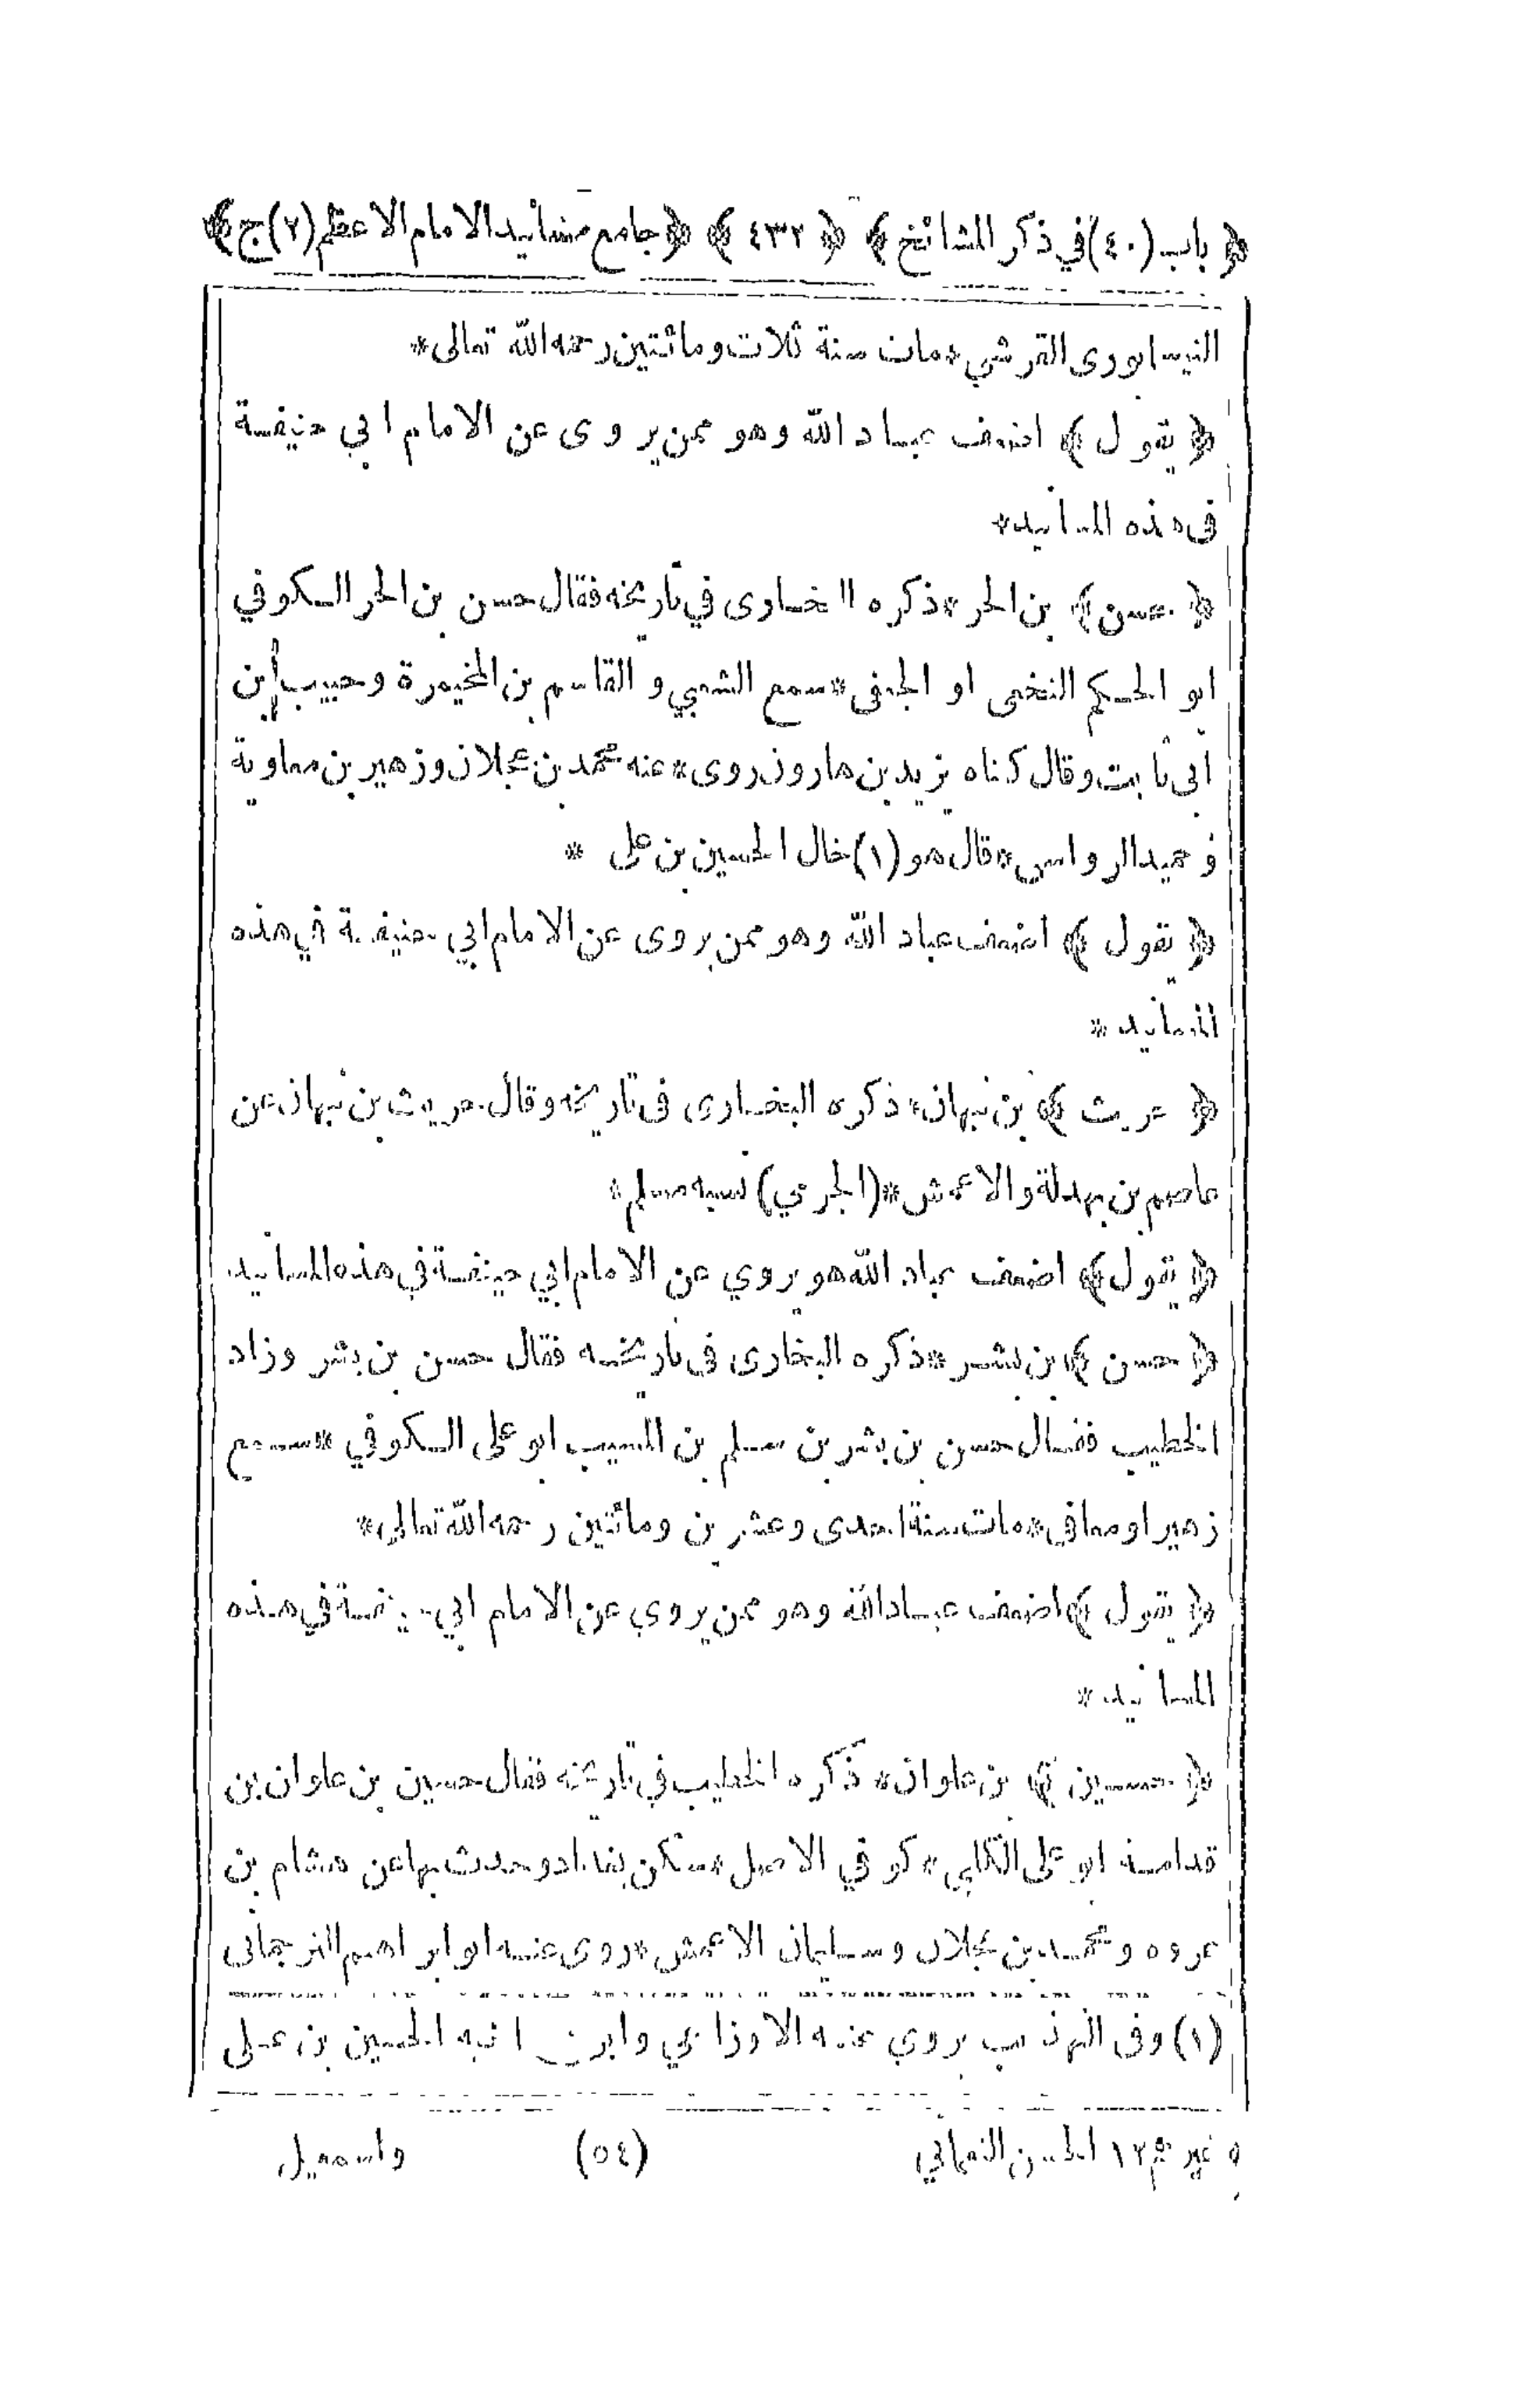 ﴿ باب (٤٠) في ذكر المشائخ ﴾ ﴿ ٤٣٢ ﴾ ﴿ جامع مسانيد الامام الاعظم (٢) ج ﴾
النيسابورى القرشي * مات سنة ثلاث ومائتين رحمه الله تعالى *
﴿ يقول ﴾ اضعف عباد الله وهو ممن يروى عن الامام ابي حنيفة
فى هذه المسانيد *
﴿ حسن ﴾ بن الحر * ذكره البخارى في تاريخه فقال حسن بن الحر الكوفي
ابو الحكم النخعى او الجعفى * سمع الشعبي و القاسم بن المخيمرة وحبيب بن
ابى ثابت وقال كناه يزيد بن هارون روى * عنه محمد بن عجلان وزهير بن معاوية
وحميد الرواسي * قال هو (١) خال الحسين بن على *
﴿ يقول ﴾ اضعف عباد الله وهو ممن يروى عن الامام ابي حنيفة في هذه
المسانيد *
﴿ حريث ﴾ بن نبهان * ذكره البخارى فى تاريخه وقال حريث بن نبهان عن
عاصم بن بهدلة والاعمش * (الجرمي) نسبه مسلم *
﴿ يقول ﴾ اضعف عباد الله هو يروي عن الامام ابي حنيفة في هذه المسانيد
﴿ حسن ﴾ بن بشر * ذكره البخارى فى تاريخه فقال حسن بن بشر وزاد
الخطيب فقال حسن بن بشر بن سلم بن المسيب ابو على الكوفي * سمع
زهيرا ومعافى * مات سنة احدى وعشرين ومائتين رحمه الله تعالى *
﴿ يقول ﴾ اضعف عباد الله وهو ممن يروي عن الامام ابي حنيفة في هذه
المسانيد *
﴿ حسين ﴾ بن علوان * ذكره الخطيب في تاريخه فقال حسين بن علوان بن
قدامة ابو على الكلبي * كوفي الاصل * سكن بغداد وحدث بها عن هشام بن
عروه ومحمد بن عجلان وسليمان الاعمش * روى عنه ابو ابراهيم الترجمانى
(١) وفى التهذيب يروي عنه الاوزاعي وابن اخيه الحسين بن على
وغيرهم ١٢ الحسن النعماني (٥٤) واسمعيل